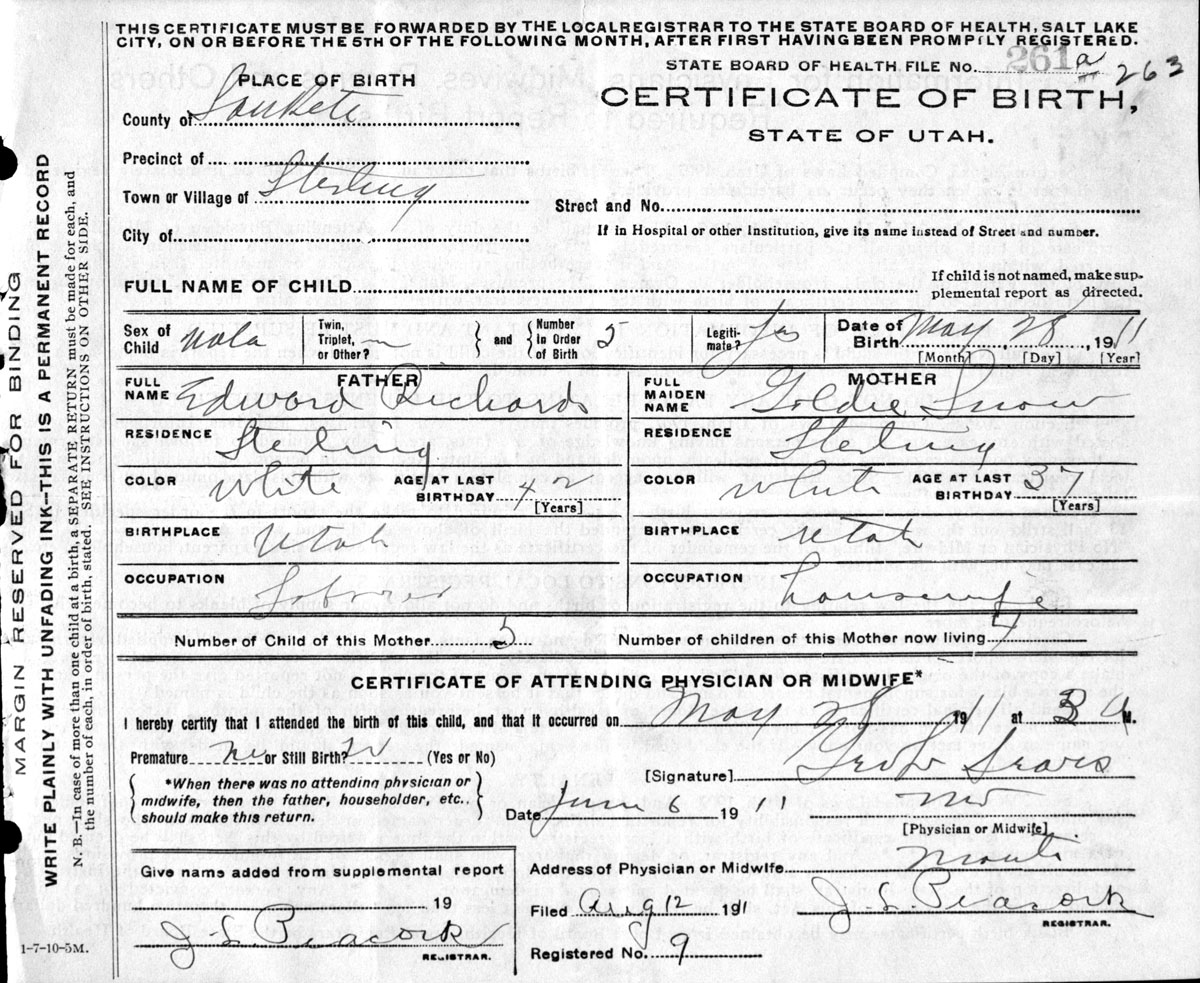 THIS CERTIFICATE MUST BE FORWARDED BY THE LOCAL REGISTRAR TO THE STATE BOARD OF HEALTH, SALT LAKE
CITY, ON OR BEFORE THE 5TH OF THE FOLLOWING MONTH, AFTER FIRST HAVING BEEN PROMPTLY REGISTERED.
STATE BOARD OF HEALTH FILE No. 261 a 263
PLACE OF BIRTH
CERTIFICATE OF BIRTH,
STATE OF UTAH.
County of Sankete
Precinct of
Town or Village of Sterling
Street and No.
City of
If in Hospital or other Institution, give its name instead of Street and number.
FULL NAME OF CHILD
If child is not named, make sup-
plemental report as directed.
Sex of Child
Twin, Triplet, or Other?
and
Number in Order of Birth 5
Legiti-mate?
Date of Birth May 28, 1911
[Month] [Day] [Year]
FATHER
FULL NAME Edward Richards
RESIDENCE Sterling
COLOR White
AGE AT LAST BIRTHDAY 42
[Years]
BIRTHPLACE Utah
OCCUPATION Laborer
MOTHER
FULL MAIDEN NAME Goldie Snow
RESIDENCE Sterling
COLOR White
AGE AT LAST BIRTHDAY 37
[Years]
BIRTHPLACE Utah
OCCUPATION housewife
Number of Child of this Mother 5
Number of children of this Mother now living
CERTIFICATE OF ATTENDING PHYSICIAN OR MIDWIFE*
I hereby certify that I attended the birth of this child, and that it occurred on May 28 191 at 3 A M.
Premature no or Still Birth? no (Yes or No)
*When there was no attending physician or
midwife, then the father, householder, etc.,
should make this return.
[Signature] Sears
Date June 6 1911
MD
[Physician or Midwife]
Give name added from supplemental report
19
J L Peacock
REGISTRAR.
Address of Physician or Midwife Manti
Filed Aug 12 1911 J L Peacock
REGISTRAR.
Registered No. 9
1-7-10-5M.
MARGIN RESERVED FOR BINDING
WRITE PLAINLY WITH UNFADING INK—THIS IS A PERMANENT RECORD
N. B.—In case of more than one child at a birth, a SEPARATE RETURN must be made for each, and
the number of each, in order of birth, stated. SEE INSTRUCTIONS ON OTHER SIDE.